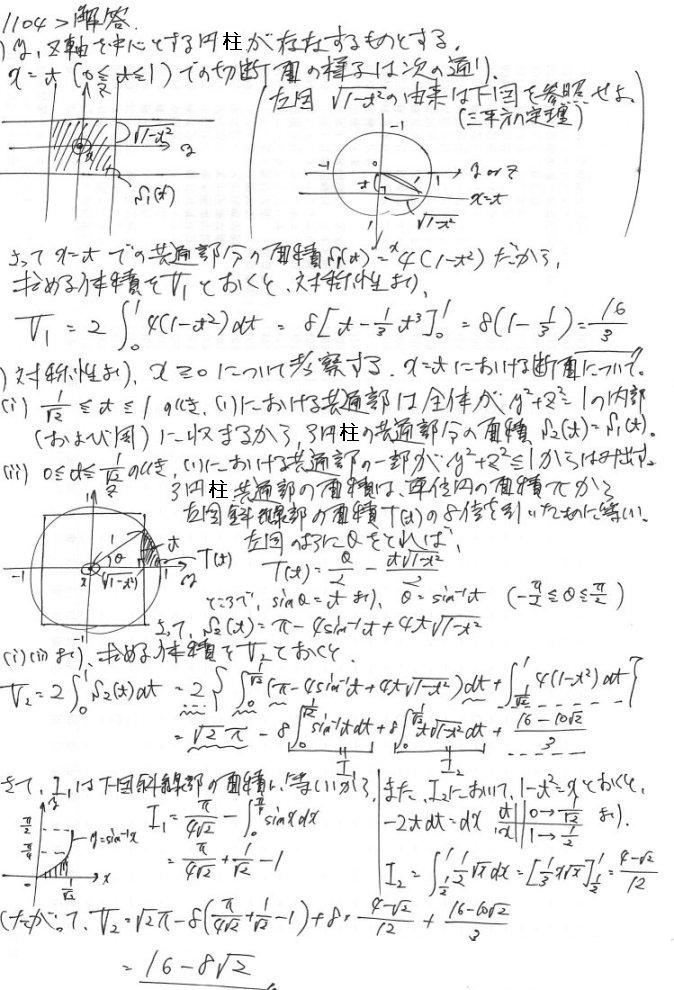 1104>解答.
) y, z軸を中心とする円柱が存在するものとする.
x=t (0≦t≦1) での切断面の様子は次の通り.
(左図 √1-t² の由来は下図を参照せよ.
(三平方の定理))
√1-t²
x
y
S₁(t)
-1
-1
0
1
t
1
y or z
x=t
√1-t²
1
x
よって x=t での共通部分の面積 S₁(t)=4(1-t²) だから,
求める体積をV₁とおくと、対称性より,
V₁ = 2∫₀¹ 4(1-t²)dt = 8[t-1/3 t³]₀¹ = 8(1-1/3) = 16/3
) 対称性より, x≧0 について考察する. x=tにおける断面について.
(i) 1/√2≦t≦1 のとき, (1)における共通部は全体が y²+z²=1の内部
(および周)に収まるから, 3円柱の共通部分の面積 S₂(t)=S₁(t).
(ii) 0≦t≦1/√2 のとき, (1)における共通部の一部が y²+z²≦1からはみ出す.
3円柱共通部の面積は, 単位円の面積πから
左図斜線部の面積T(t)の8倍を引いたものに等しい.
z
1
-1
1
θ
t
x
√1-t²
1
y
T(t)
-1
左図のようにθをとれば,
T(t)=θ/2 - t√1-t²/2
ところで, sinθ=t より, θ=sin⁻¹t (-π/2≦θ≦π/2)
よって, S₂(t)=π-4sin⁻¹t+4t√1-t²
(i)(ii)より, 求める体積をV₂とおくと,
V₂=2∫₀¹S₂(t)dt = 2{∫₀^(1/√2)(π-4sin⁻¹t+4t√1-t²)dt + ∫_(1/√2)^1 4(1-t²)dt}
= √2π - 8∫₀^(1/√2) sin⁻¹t dt + 8∫₀^(1/√2) t√1-t² dt + 16-10√2/3
I₁
I₂
さて, I₁は下図斜線部の面積に等しいから,
y
π/2
π/4
y=sin⁻¹x
0
1/√2
x
I₁=π/4√2 - ∫₀^(π/4) sinx dx
= π/4√2 + 1/√2 - 1
また, I₂において, 1-t²=xとおくと,
-2tdt=dx t|0→1/√2 より.
x|1→1/2
I₂=∫_(1/2)^1 1/2 √x dx = [1/3 x√x]_(1/2)^1 = 4-√2/12
したがって, V₂=√2π-8(π/4√2+1/√2-1)+8・4-√2/12 + 16-10√2/3
= 16-8√2